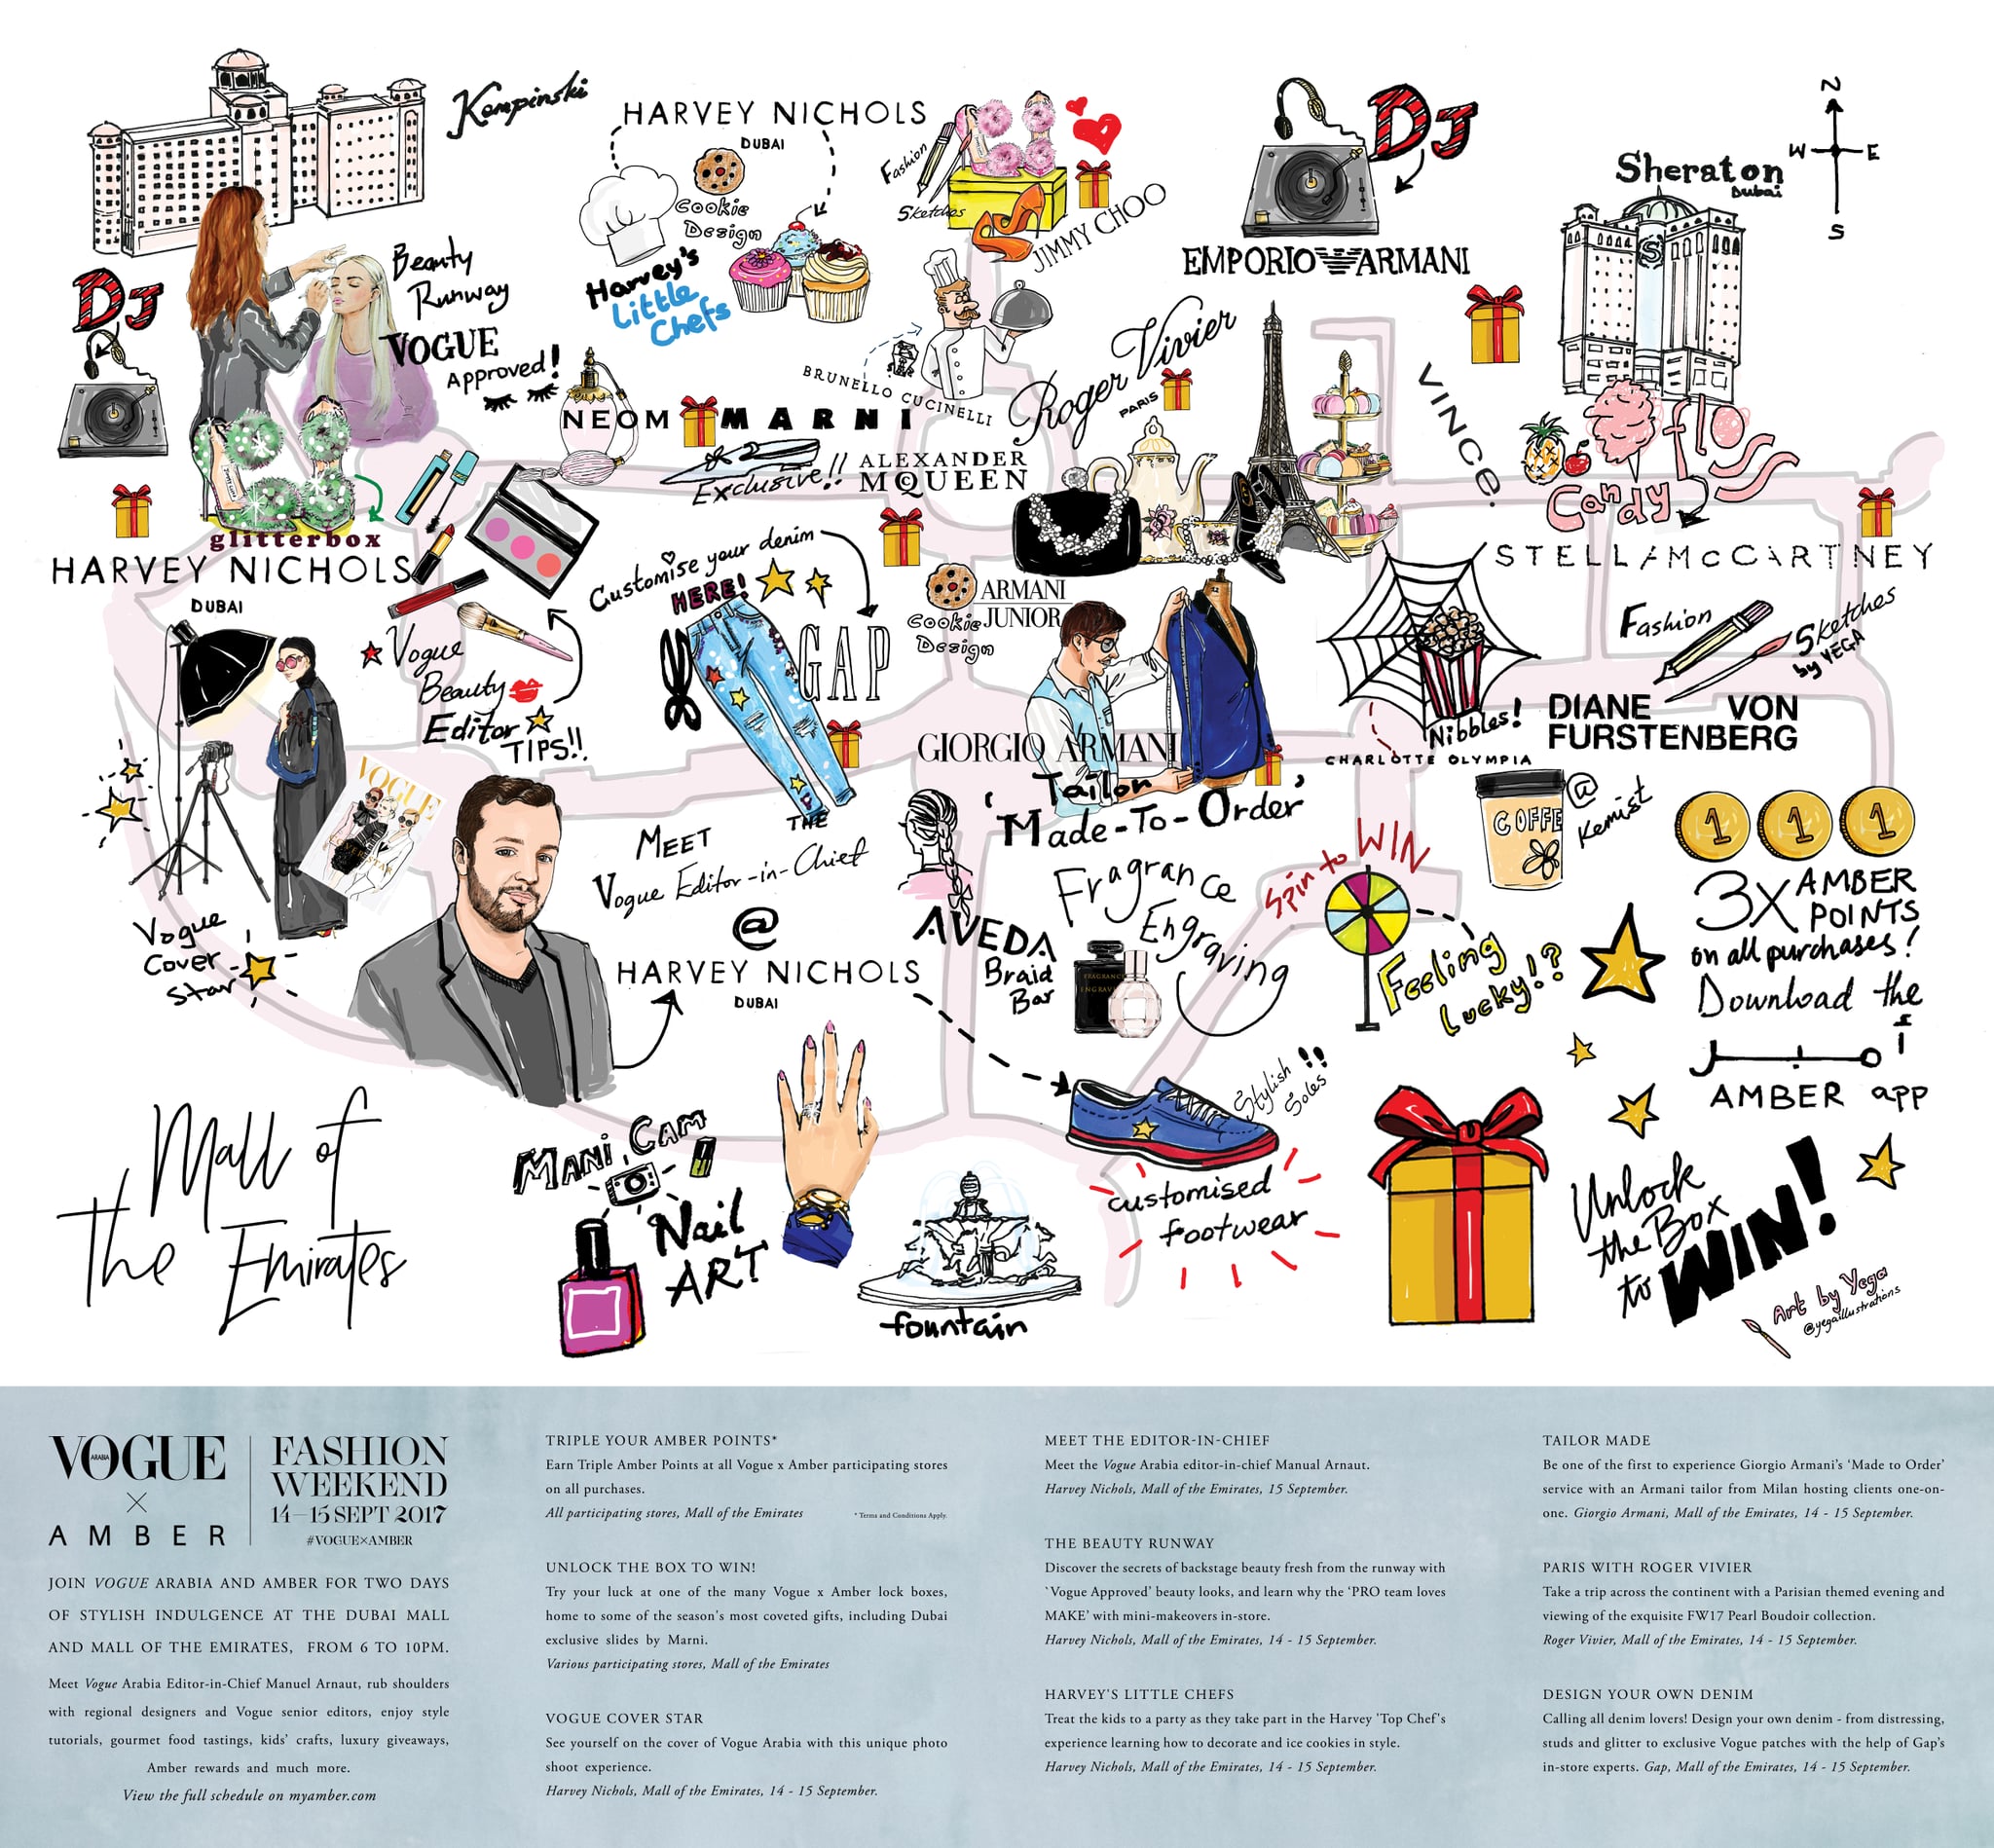 Kempinski
HARVEY NICHOLS
DUBAI
Cookie
Design
Harvey's
Little
Chefs
Fashion
Sketches
JIMMY CHOO
DJ
EMPORIO ARMANI
N
W E
S
Sheraton
Dubai
S
DJ
Beauty
Runway
VOGUE
Approved!
BRUNELLO CUCINELLI
Roger Vivier
PARIS
VINCE.
NEOM
MARNI
Exclusive!!
ALEXANDER
MCQUEEN
Candy
floss
glitterbox
HARVEY NICHOLS
DUBAI
Customise your denim
HERE!
GAP
ARMANI
JUNIOR
Cookie
Design
STELLA McCARTNEY
Fashion
Sketches
by YEGA
Vogue
Beauty
Editor
TIPS!!
GIORGIO ARMANI
Tailor
'Made-To-Order'
Nibbles!
CHARLOTTE OLYMPIA
DIANE VON
FURSTENBERG
VOGUE
Vogue
Cover
Star
MEET THE
Vogue Editor-in-Chief
@
HARVEY NICHOLS
DUBAI
AVEDA
Braid
Bar
Fragrance
Engraving
FRAGRANCE
ENGRAVING
Spin to WIN
Feeling
Lucky!?
COFFE
@
Kemist
1 1 1
3X AMBER
POINTS
on all purchases!
Download the
AMBER app
Stylish
Soles!!
customised
footwear
Mall of
the Emirates
MANI CAM
Nail
ART
fountain
Unlock
the Box
to WIN!
Art by Yega
@yegaillustrations
VOGUE
ARABIA
×
AMBER
FASHION
WEEKEND
14—15 SEPT 2017
#VOGUE×AMBER
JOIN VOGUE ARABIA AND AMBER FOR TWO DAYS
OF STYLISH INDULGENCE AT THE DUBAI MALL
AND MALL OF THE EMIRATES, FROM 6 TO 10PM.
Meet Vogue Arabia Editor-in-Chief Manuel Arnaut, rub shoulders
with regional designers and Vogue senior editors, enjoy style
tutorials, gourmet food tastings, kids' crafts, luxury giveaways,
Amber rewards and much more.
View the full schedule on myamber.com
TRIPLE YOUR AMBER POINTS*
Earn Triple Amber Points at all Vogue x Amber participating stores
on all purchases.
All participating stores, Mall of the Emirates
* Terms and Conditions Apply.
UNLOCK THE BOX TO WIN!
Try your luck at one of the many Vogue x Amber lock boxes,
home to some of the season's most coveted gifts, including Dubai
exclusive slides by Marni.
Various participating stores, Mall of the Emirates
VOGUE COVER STAR
See yourself on the cover of Vogue Arabia with this unique photo
shoot experience.
Harvey Nichols, Mall of the Emirates, 14 - 15 September.
MEET THE EDITOR-IN-CHIEF
Meet the Vogue Arabia editor-in-chief Manual Arnaut.
Harvey Nichols, Mall of the Emirates, 15 September.
THE BEAUTY RUNWAY
Discover the secrets of backstage beauty fresh from the runway with
`Vogue Approved' beauty looks, and learn why the 'PRO team loves
MAKE' with mini-makeovers in-store.
Harvey Nichols, Mall of the Emirates, 14 - 15 September.
HARVEY'S LITTLE CHEFS
Treat the kids to a party as they take part in the Harvey 'Top Chef's
experience learning how to decorate and ice cookies in style.
Harvey Nichols, Mall of the Emirates, 14 - 15 September.
TAILOR MADE
Be one of the first to experience Giorgio Armani's 'Made to Order'
service with an Armani tailor from Milan hosting clients one-on-
one. Giorgio Armani, Mall of the Emirates, 14 - 15 September.
PARIS WITH ROGER VIVIER
Take a trip across the continent with a Parisian themed evening and
viewing of the exquisite FW17 Pearl Boudoir collection.
Roger Vivier, Mall of the Emirates, 14 - 15 September.
DESIGN YOUR OWN DENIM
Calling all denim lovers! Design your own denim - from distressing,
studs and glitter to exclusive Vogue patches with the help of Gap's
in-store experts. Gap, Mall of the Emirates, 14 - 15 September.